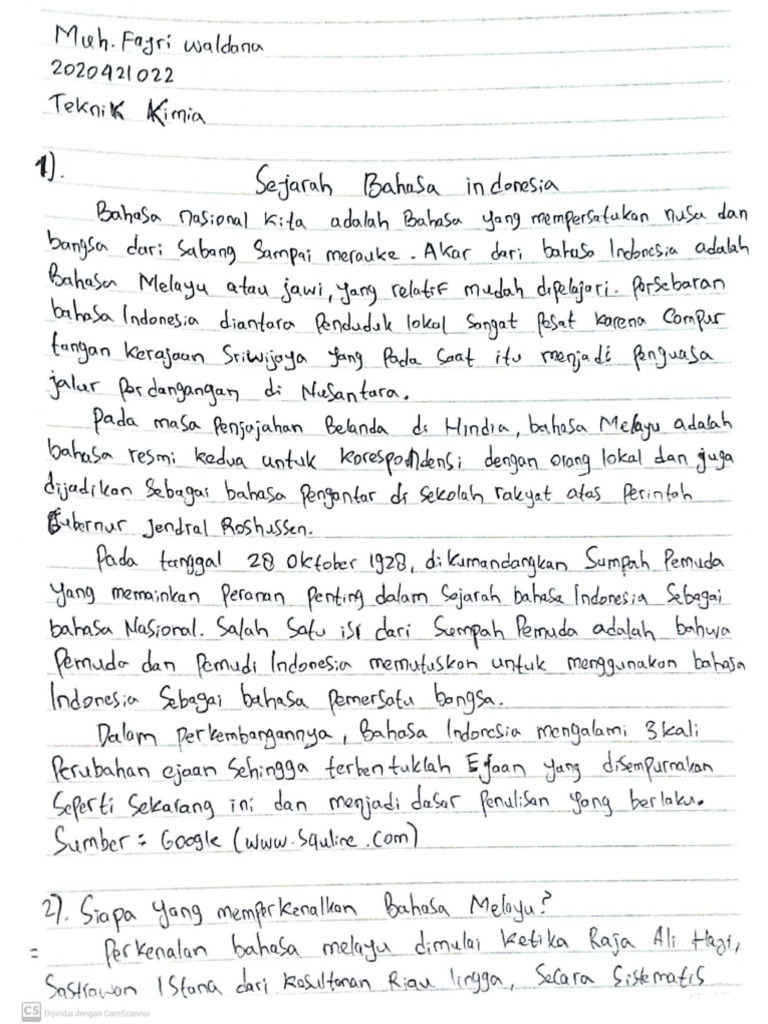 Muh. Fajri Waldana
2020421022
Teknik Kimia
1).
Sejarah Bahasa indonesia
Bahasa nasional kita adalah Bahasa yang mempersatukan nusa dan
bangsa dari Sabang Sampai merauke. Akar dari bahasa Indonesia adalah
Bahasa Melayu atau jawi, yang relatif mudah dipelajari. Persebaran
bahasa Indonesia diantara Penduduk lokal Sangat Pesat karena Campur
tangan kerajaan Sriwijaya yang Pada Saat itu menjadi Penguasa
jalur Perdangangan di Nusantara.
Pada masa Penjajahan Belanda di Hindia, bahasa Melayu adalah
bahasa resmi kedua untuk korespondensi dengan orang lokal dan juga
dijadikan Sebagai bahasa Pengantar di Sekolah rakyat atas Perintah
Gubernur Jendral Roshussen.
Pada tanggal 28 Oktober 1928, dikumandangkan Sumpah Pemuda
yang memainkan Peranan Penting dalam Sejarah bahasa Indonesia Sebagai
bahasa Nasional. Salah Satu isi dari Sumpah Pemuda adalah bahwa
Pemuda dan Pemudi Indonesia memutuskan untuk menggunakan bahasa
Indonesia Sebagai bahasa Pemersatu bangsa.
Dalam Perkembangannya, Bahasa Indonesia mengalami 3 kali
Perubahan ejaan Sehingga terbentuklah Ejaan yang disempurnakan
Seperti Sekarang ini dan menjadi dasar Penulisan yang berlaku.
Sumber = Google (www.Squline.com)
2). Siapa yang memperkenalkan Bahasa Melayu?
= Perkenalan bahasa melayu dimulai ketika Raja Ali Haji,
Sastrawan Istana dari Kesultanan Riau lingga, Secara Sistematis
CS Dipindai dengan CamScanner